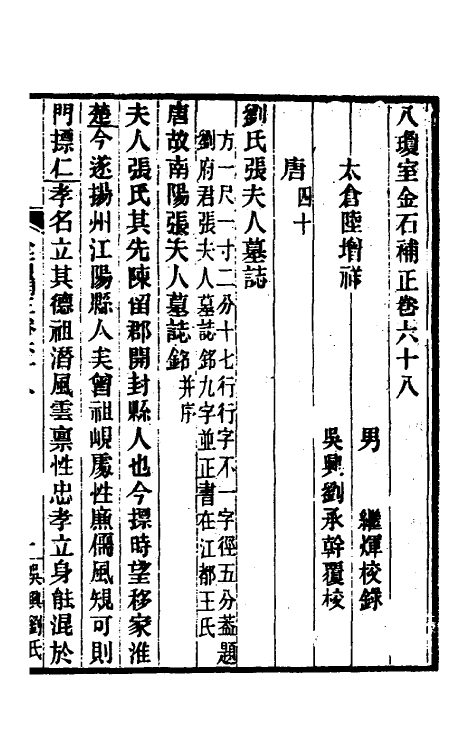 八瓊室金石補正卷六十八
男　繼煇校錄
太倉陸增祥
吳興劉承幹覆校
唐四十
劉氏張夫人墓誌
方一尺一寸二分十七行行字不一字徑五分蓋題
劉府君張夫人墓誌銘九字並正書在江都王氏
唐故南陽張夫人墓誌銘并序
夫人張氏其先陳留郡開封縣人也今摽時望移家淮
楚今遂揚州江陽縣人矣曾祖峴處性廉儒風規可則
門摽仁孝名立其德祖潛風雲禀性忠孝立身能混於
吳興劉氏